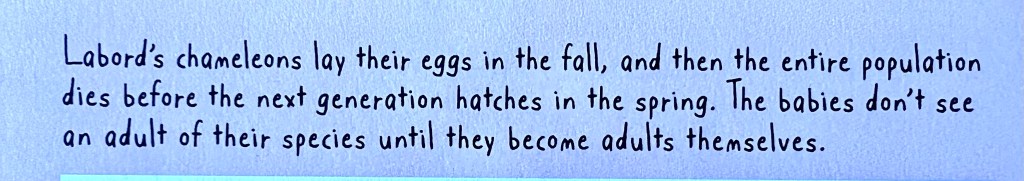 Labord's chameleons lay their eggs in the fall, and then the entire population
dies before the next generation hatches in the spring. The babies don't see
an adult of their species until they become adults themselves.